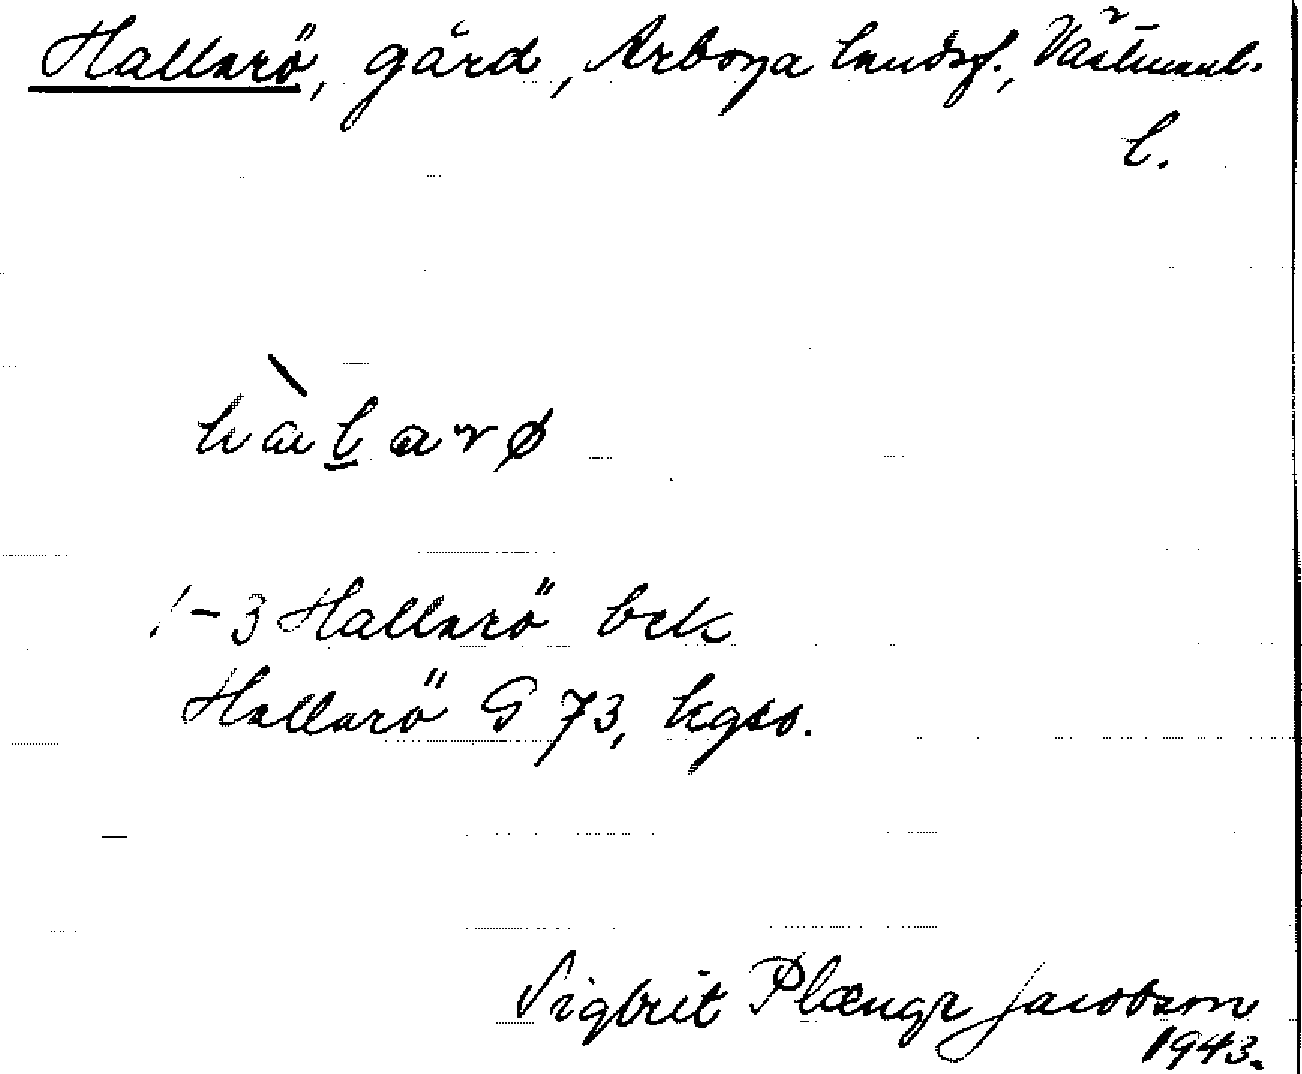 Hallarö, gård, Arboga landsf., Västmanl.
l.
hàl̠arø
1-3 Hallarö bck
Hallarö G 73, kgso.
Sigbrit Plænge Jacobson
1943.